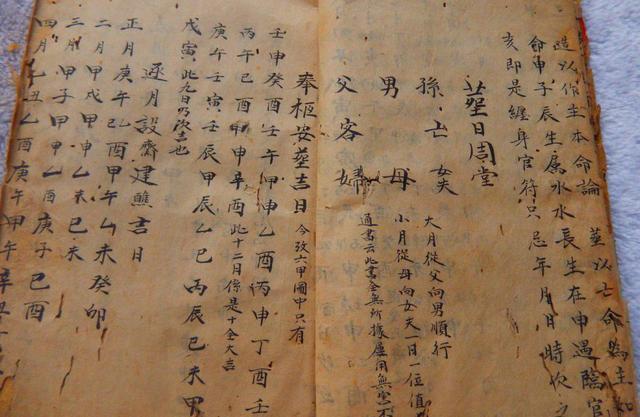 造以作主本命論 葬以亡命為主如
命申子辰生屬水水長生在申遇臨官
亥即是纏身官符只忌年月日時次之
葬日周堂
孫 亡 女夫
男 母
父 客 婦
大月從父向男順行
小月從母向女夫一日一位值
通書云此書全無所據屢用無害不
奉柩安葬吉日 今攷六甲圖中只有
壬申癸酉壬午甲申乙酉丙申丁酉壬
丙午己酉庚申辛酉 此十二日係是十全大吉
庚午壬寅壬辰甲辰乙巳丙辰己未甲
戊寅 此九日乃次吉也
逐月設齋建醮吉日
正月庚午己酉甲午乙未癸卯
二月甲戌甲申乙未己未
三月甲子甲申乙酉庚子己酉
四月乙丑乙酉庚午甲午辛丑